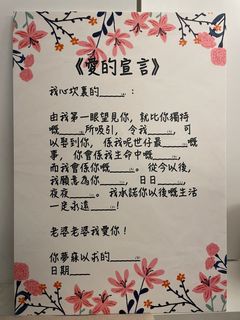 《愛的宣言》
我心坎裏的______:
由我第一眼望見你，就比你獨特
嘅______所吸引，令我______ 可
以娶到你，係我呢世仔最______嘅
事，你會係我生命中嘅______，
而我會係你嘅______。從今以後，
我願意為你______，日日______，
夜夜______。我承諾你以後嘅生活
一定永遠______！
老婆老婆我愛你！
你夢寐以求的______
日期______